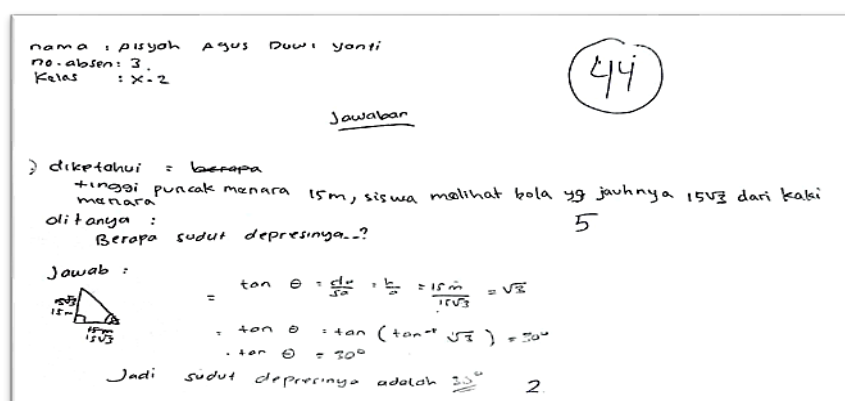 nama : pisyah Agus Duwi yanti
no.absen: 3.
Kelas : X-2
44
Jawaban
) diketahui : berapa
tinggi puncak menara 15m, siswa melihat bola yg jauhnya 15√3 dari kaki
menara
ditanya :
5
Berapa sudut depresinya..?
Jawab :
= tan θ = de/sa = h/a = 15 m/15√3 = √3
15√3
15m
15m
15√3
= tan θ = tan (tan⁻¹ √3) = 30°
. tan θ = 30°
Jadi sudut depresinya adalah 30° 2.